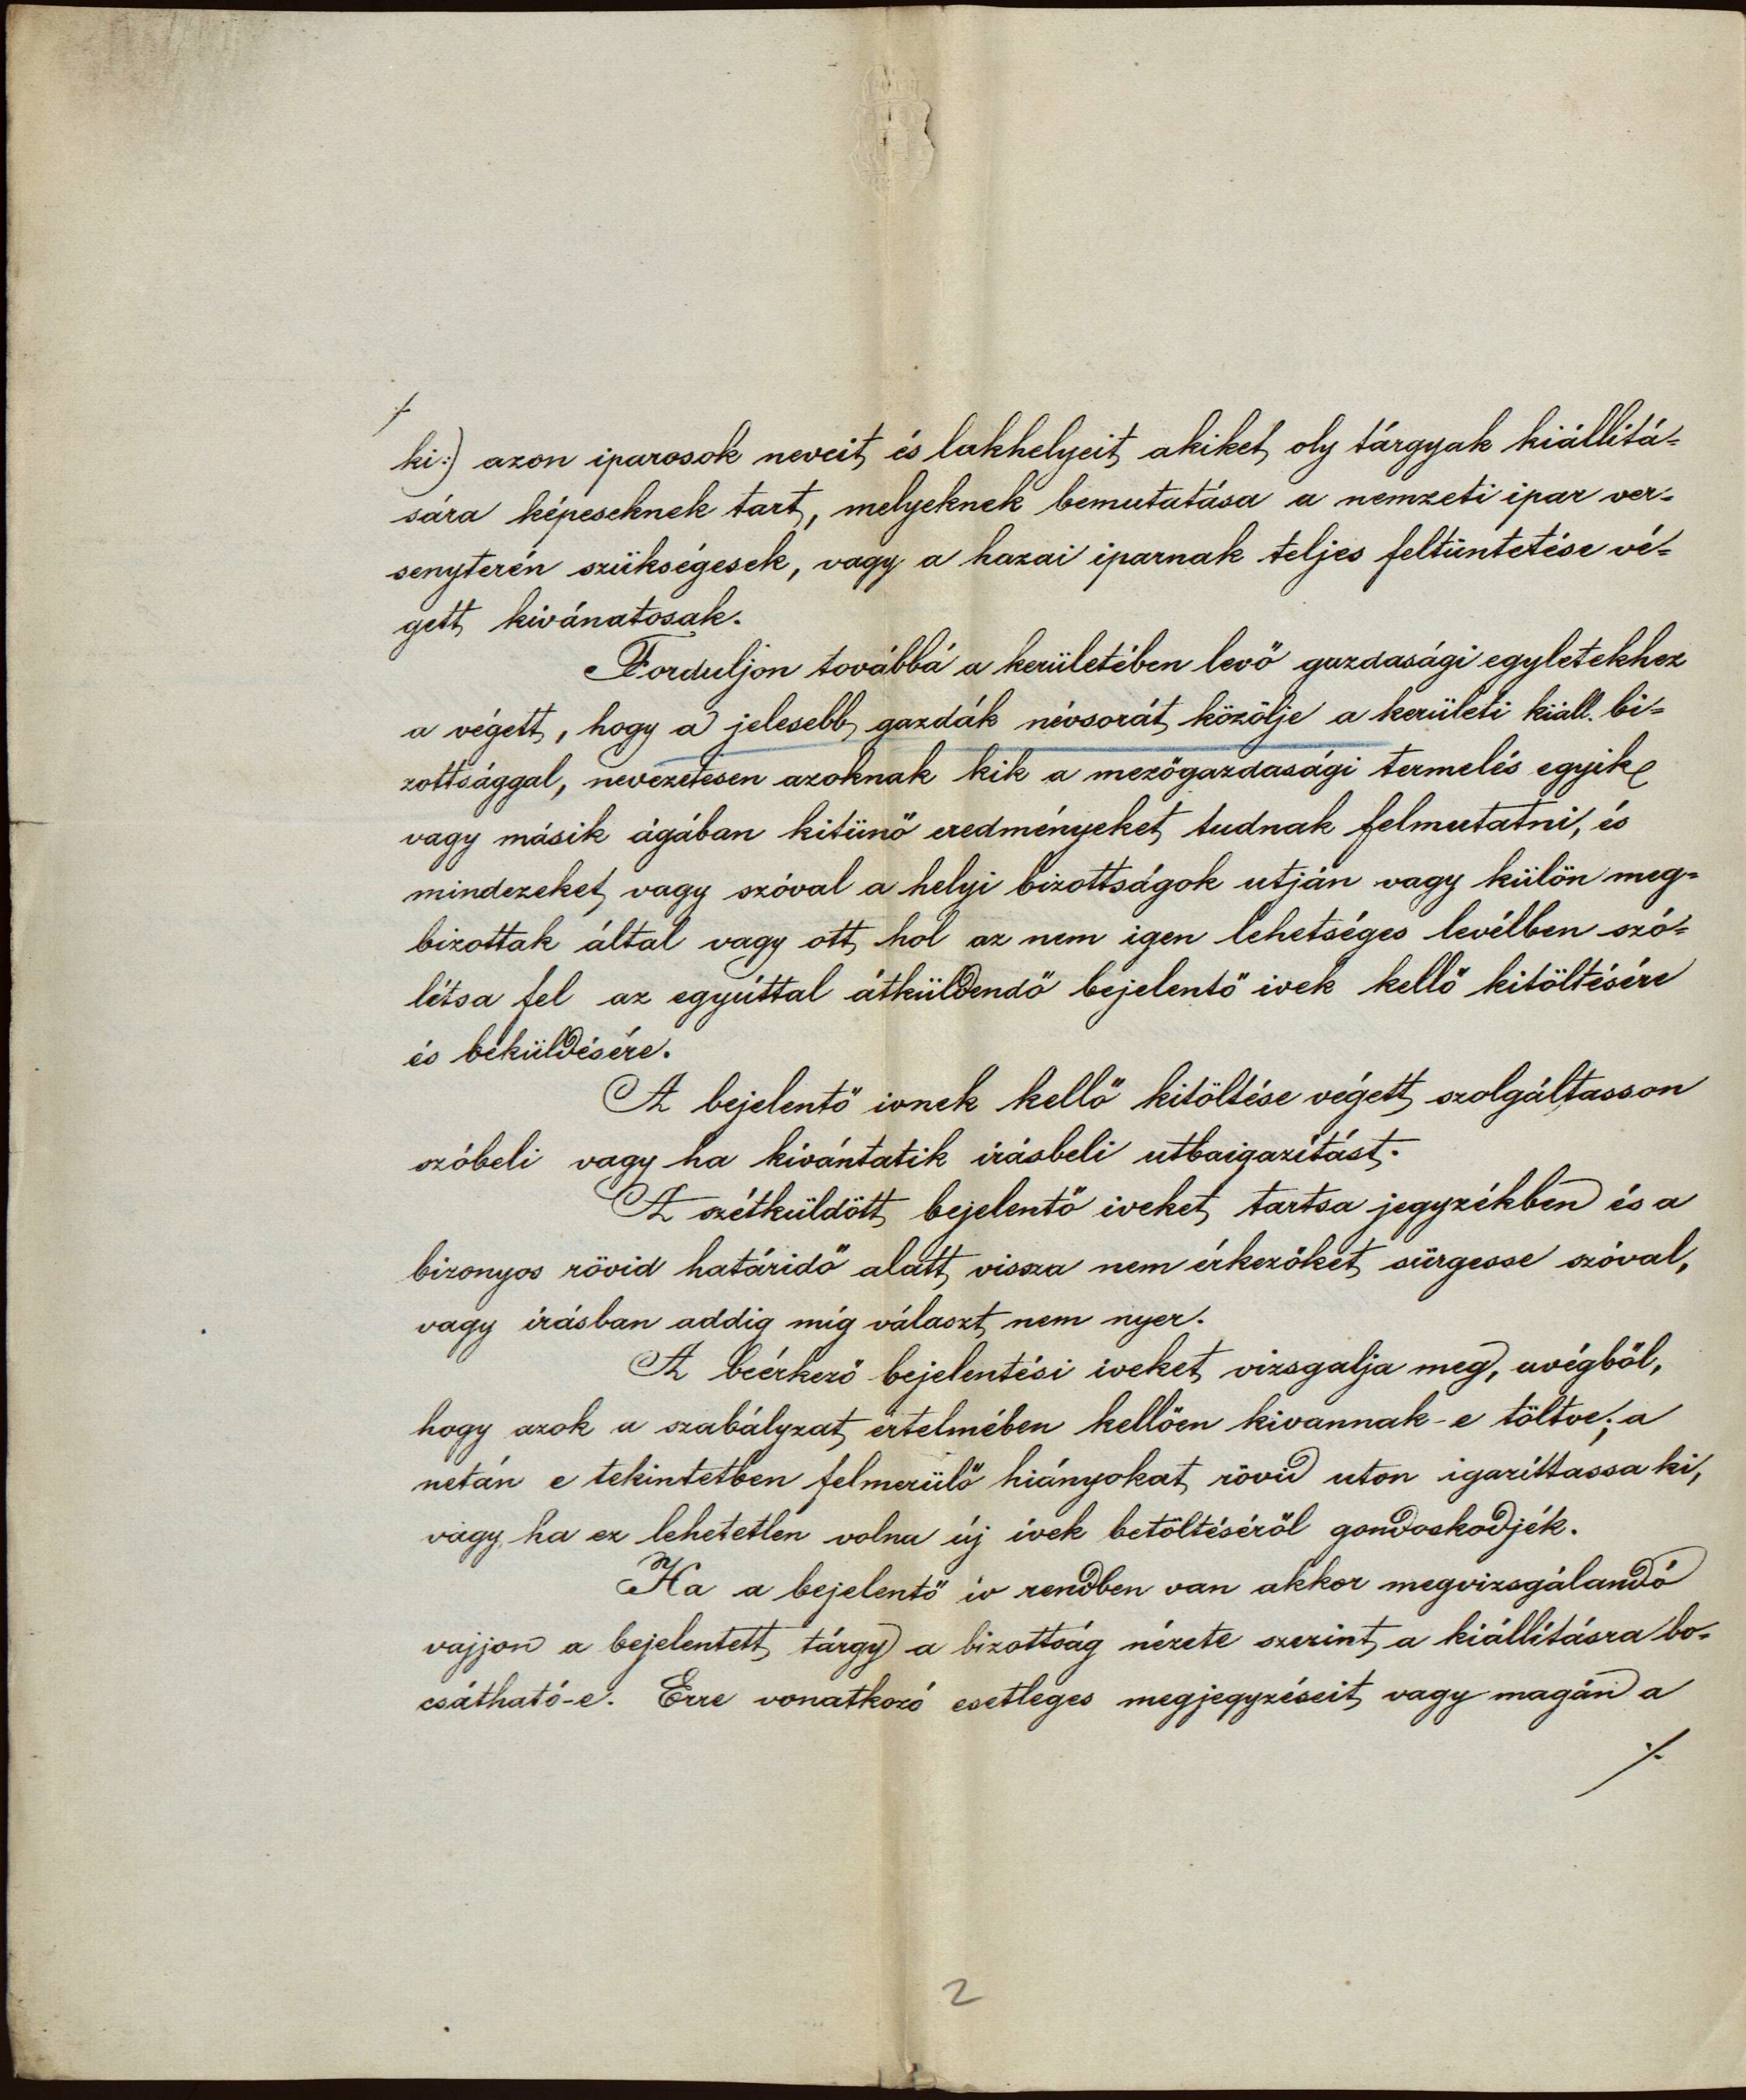 ⁒
ki:) azon iparosok neveit és lakhelyeit akiket oly tárgyak kiállitá=
sára képeseknek tart, melyeknek bemutatása a nemzeti ipar ver=
senyterén szükségesek, vagy a hazai iparnak teljes feltüntetése vé=
gett kivánatosak.
Forduljon továbbá a kerületében levő gazdasági egyletekhez
a végett, hogy a jelesebb gazdák névsorát közölje a kerületi kiáll. bi=
zottsággal, nevezetesen azoknak kik a mezőgazdasági termelés egyik
vagy másik ágában kitünő eredményeket tudnak felmutatni, és
mindezeket vagy szóval a helyi bizottságok utján vagy külön meg=
bizottak által vagy ott hol az nem igen lehetséges levélben szó=
lítsa fel az egyúttal átküldendő bejelentő ivek kellő kitöltésére
és beküldésére.
A bejelentő ivnek kellő kitöltése végett szolgáltasson
szóbeli vagy ha kivántatik irásbeli utbaigazítást.
A szétküldött bejelentő iveket tartsa jegyzékben és a
bizonyos rövid határidő alatt vissza nem érkezőket sürgesse szóval,
vagy írásban addig míg választ nem nyer.
A beérkező bejelentési iveket vizsgalja meg, avégből,
hogy azok a szabályzat értelmében kellően kivannak-e töltve; a
netán e tekintetben felmerülő hiányokat rövid uton igazíttassa ki,
vagy ha ez lehetetlen volna új ívek betöltéséről gondoskodjék.
Ha a bejelentő ív rendben van akkor megvizsgálandó
vajjon a bejelentett tárgy a bizottság nézete szerint a kiállításra bo=
csátható-e. Erre vonatkozó esetleges megjegyzéseit vagy magán a
⁒
2